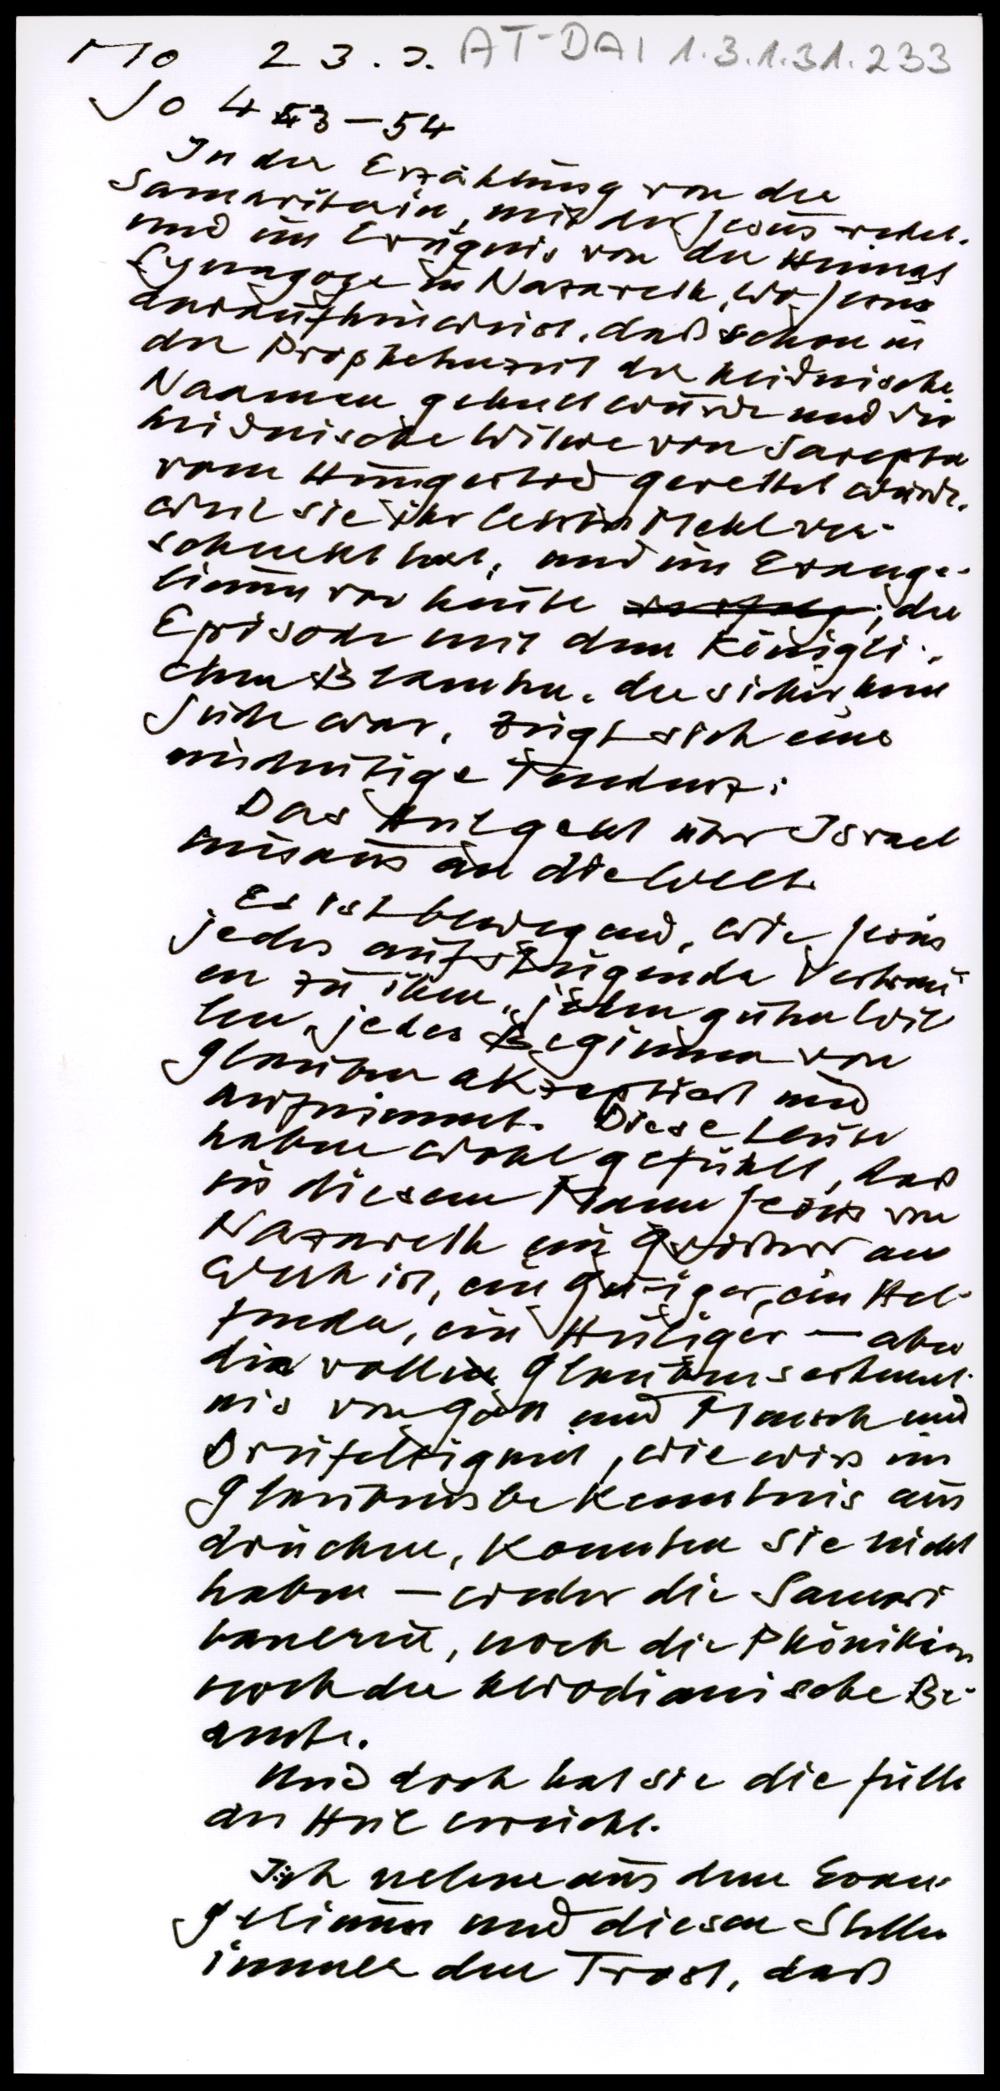 Mo 23.3. AT-DAI 1.3.1.31.233
Jo 4 43-54
In der Erzählung von der
Samaritain, mit der Jesus redet.
und im Ereignis von der Heimat
Synagoge in Nazareth, wo Jesus
darauf hinweist, daß schon in
der Prophetenzeit der heidnische
Naaman geheilt wurde und die
heidnische Witwe von Sarepta
vom Hungertod gerettet wurde,
weil sie ihr Mehl ver-
schenkt hat, und im Evange-
lium von heute ; der
Episode mit dem Königli-
chen Beamten, der sicher kein
Jude war, zeigt sich eine
eindeutige Tendenz:
Das Heil geht über Israel
hinaus an die Welt.
Es ist bewegend, wie Jesus
jedes aufsteigende Vertrau
en zu ihm, jeden guten Wil
len, jedes Beginnen von
Glauben akzeptiert und
aufnimmt. Diese Leute
haben wohl gefühlt, daß
in diesem Mann Jesus von
Nazareth ein Größerer am
Werk ist, ein Gütiger, ein Hel-
fender, ein Heiliger — aber
die volle Glaubenserkennt-
nis von Gott und Mensch und
Dreifaltigkeit, wie wir's im
Glaubensbekenntnis aus
drücken, konnten sie nicht
haben — weder die Samari
tanerin, noch die Phönikierin
noch der herodianische Be-
amte.
Und doch hat sie die Fülle
des Heil erreicht.
Ich nehme aus dem Evan-
gelium und diesen Stellen
immer den Trost, daß